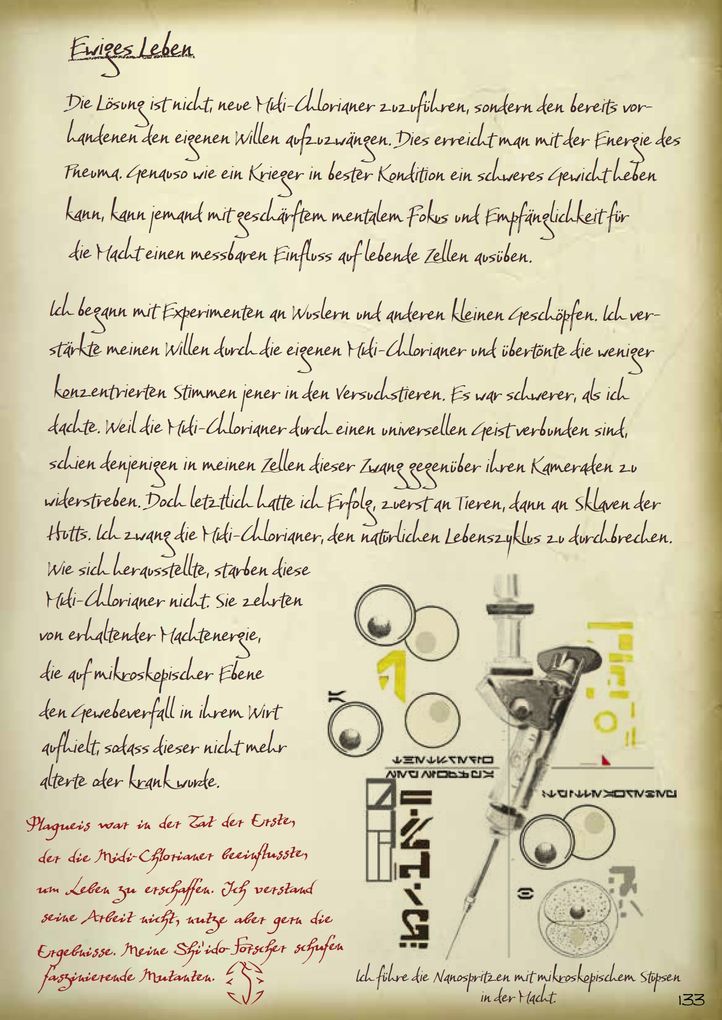 Ewiges Leben
Die Lösung ist nicht, neue Midi-Chlorianer zuzuführen, sondern den bereits vor-
handenen den eigenen Willen aufzuzwängen. Dies erreicht man mit der Energie des
Pneuma. Genauso wie ein Krieger in bester Kondition ein schweres Gewicht heben
kann, kann jemand mit geschärftem mentalem Fokus und Empfänglichkeit für
die Macht einen messbaren Einfluss auf lebende Zellen ausüben.
Ich begann mit Experimenten an Wuslern und anderen kleinen Geschöpfen. Ich ver-
stärkte meinen Willen durch die eigenen Midi-Chlorianer und übertönte die weniger
konzentrierten Stimmen jener in den Versuchstieren. Es war schwerer, als ich
dachte. Weil die Midi-Chlorianer durch einen universellen Geist verbunden sind,
schien denjenigen in meinen Zellen dieser Zwang gegenüber ihren Kameraden zu
widerstreben. Doch letztlich hatte ich Erfolg, zuerst an Tieren, dann an Sklaven der
Hutts. Ich zwang die Midi-Chlorianer, den natürlichen Lebenszyklus zu durchbrechen.
Wie sich herausstellte, starben diese
Midi-Chlorianer nicht. Sie zehrten
von erhaltender Machtenergie,
die auf mikroskopischer Ebene
den Gewebeverfall in ihrem Wirt
aufhielt, sodass dieser nicht mehr
alterte oder krank wurde.
Plagueis war in der Tat der Erste,
der die Midi-Chlorianer beeinflusste,
um Leben zu erschaffen. Ich verstand
seine Arbeit nicht, nutze aber gern die
Ergebnisse. Meine Shi'ido-Forscher schufen
faszinierende Mutanten.
Ich führe die Nanospritzen mit mikroskopischem Stupsen
in der Macht.
133